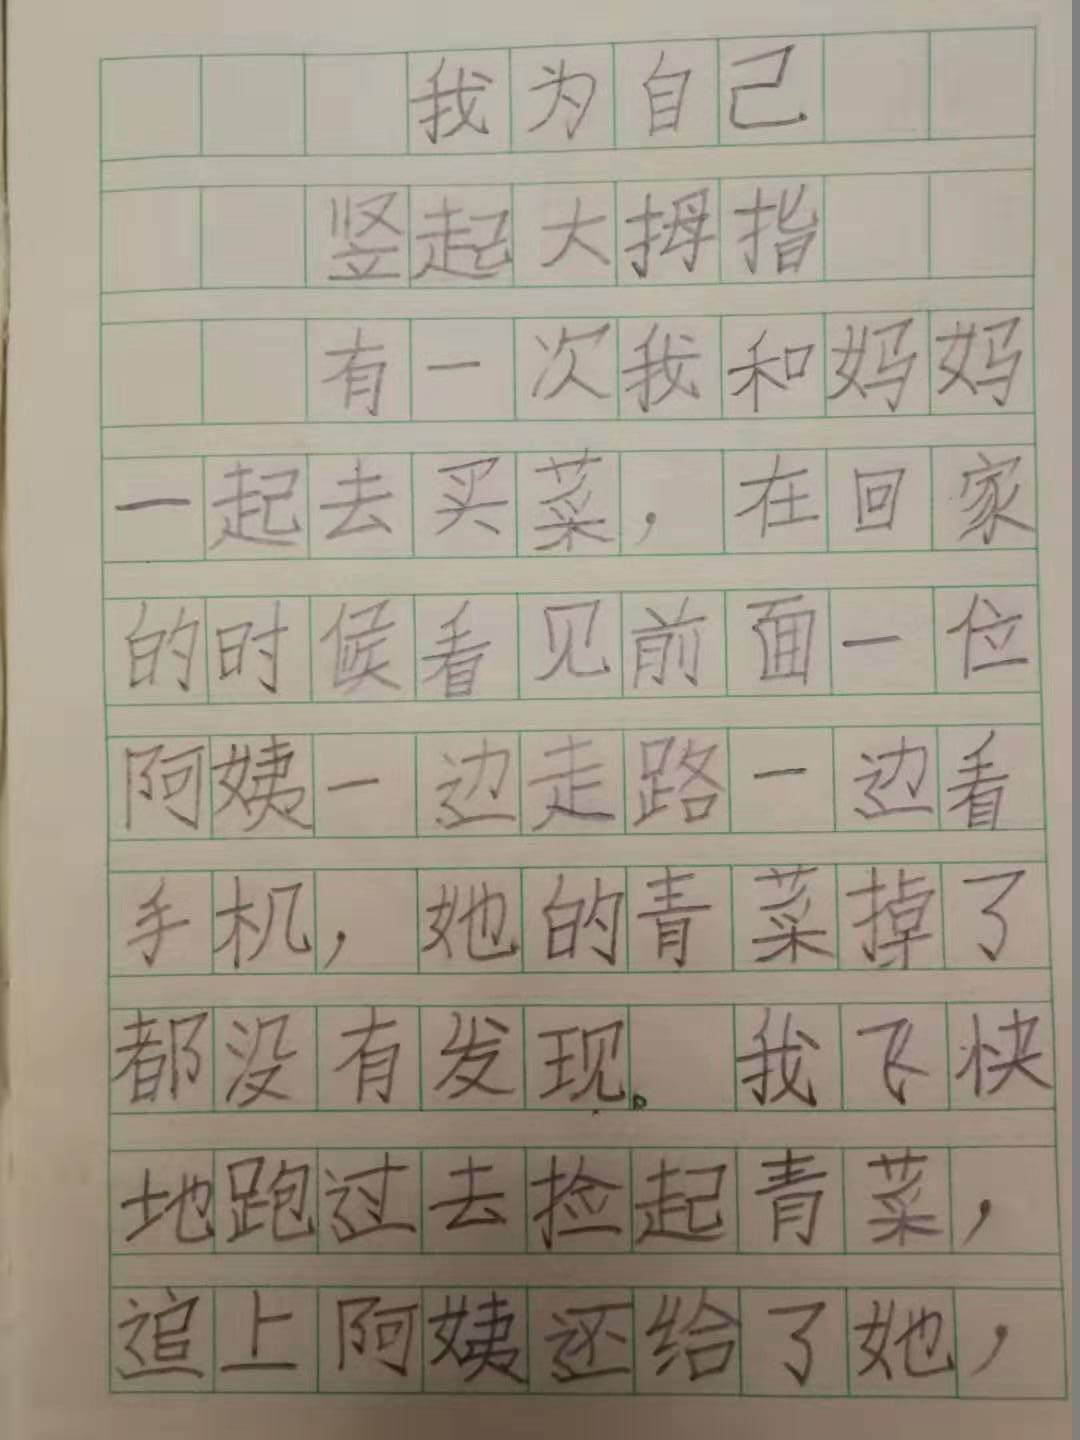 我为自己
竖起大拇指
有一次我和妈妈
一起去买菜，在回家
的时候看见前面一位
阿姨一边走路一边看
手机，她的青菜掉了
都没有发现。我飞快
地跑过去捡起青菜，
追上阿姨还给了她，